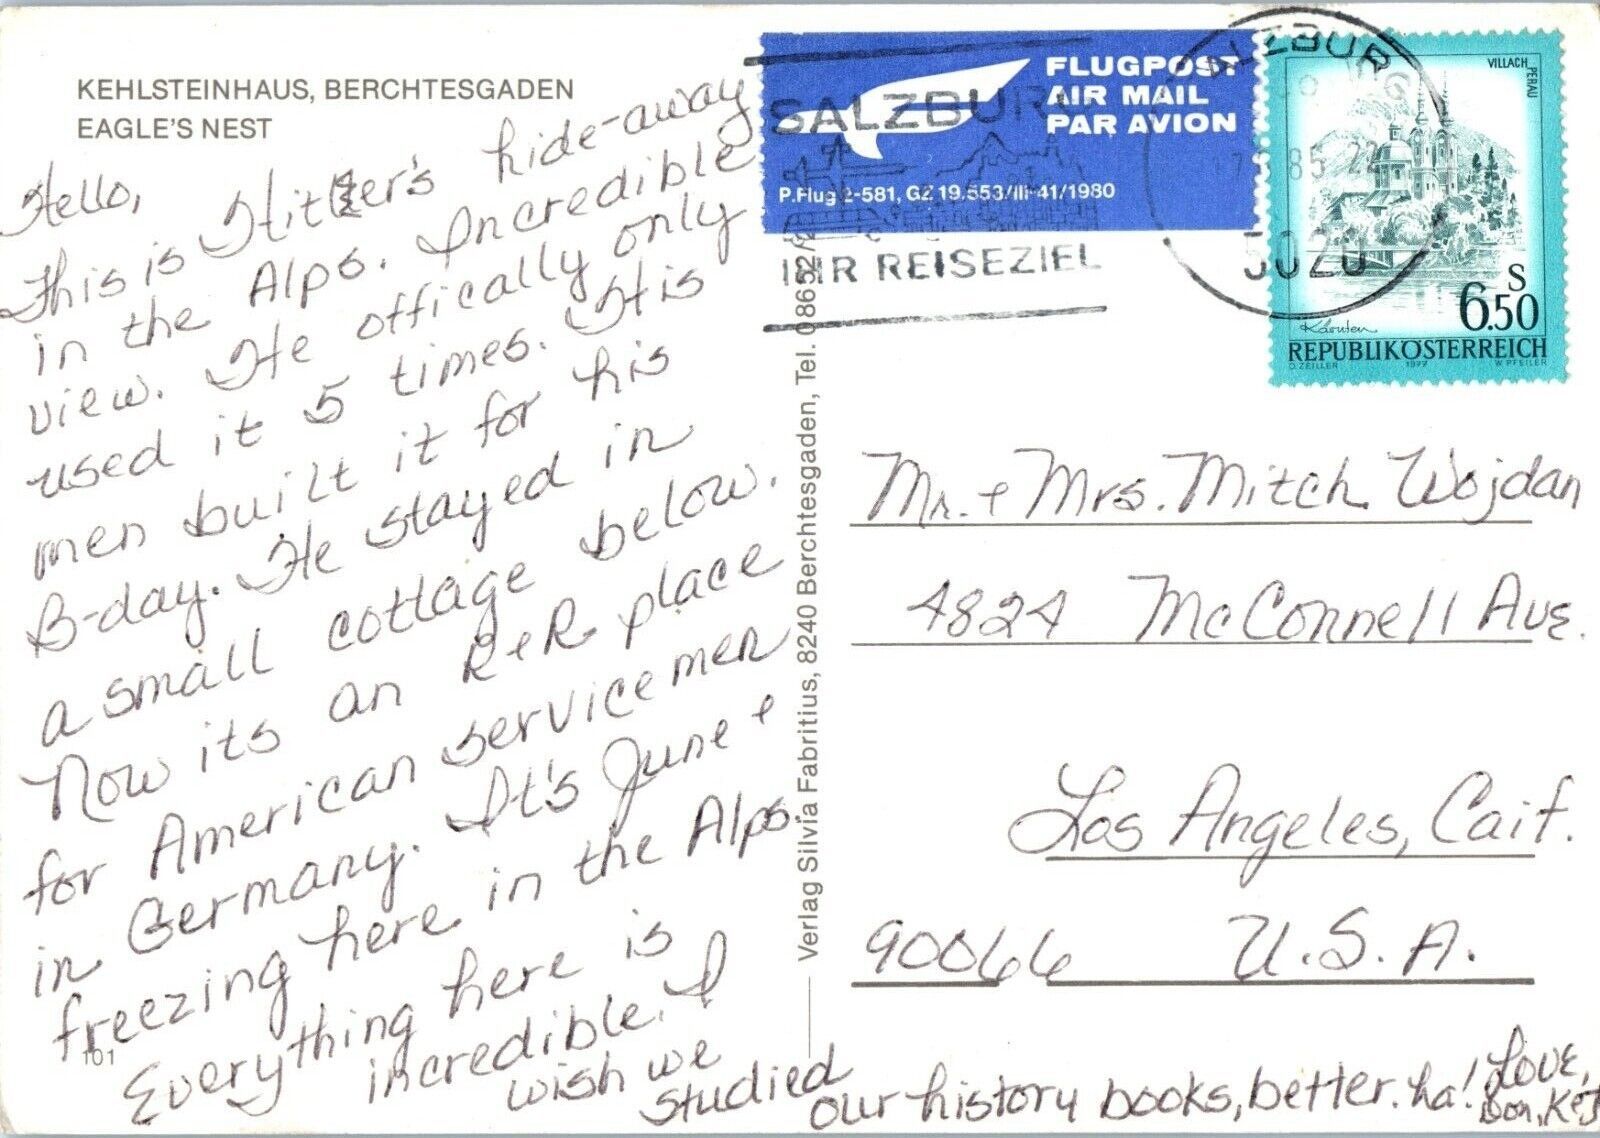 KEHLSTEINHAUS, BERCHTESGADEN
EAGLE'S NEST
Hello,
This is Hitler's hide-away
in the Alps. Incredible
view. He offically only
used it 5 times. His
men built it for his
B-day. He stayed in
a small cottage below.
Now its an R+R place
for American servicemen
in Germany. It's June +
freezing here in the Alps.
Everything here is
incredible. I
wish we
studied
our history books, better. ha!
Love,
Don,
101
Verlag Silvia Fabritius, 8240 Berchtesgaden, Tel. 08652/
FLUGPOST
AIR MAIL
PAR AVION
P.Flug 2-581, GZ 19.553/III-41/1980
SALZBURG
IHR REISEZIEL
SALZBURG
85-22
5020
VILLACH
PERAU
S
6.50
Kärnten
REPUBLIK ÖSTERREICH
O. ZEILLER 1977 W. PFEILER
Mr. + Mrs. Mitch Wojdan
4824 McConnell Ave.
Los Angeles, Caif.
90066 U.S.A.